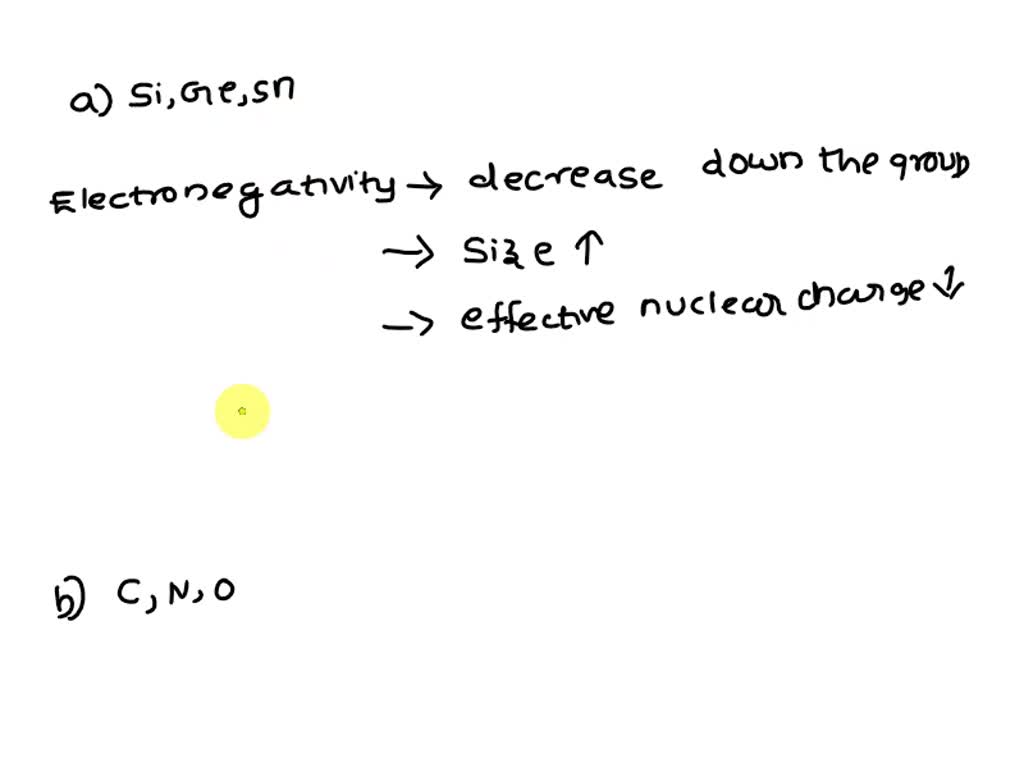 a) Si, Ge, Sn
Electronegativity → decrease down the group
→ Size ↑
→ effective nuclear charge ↓
b) C, N, O